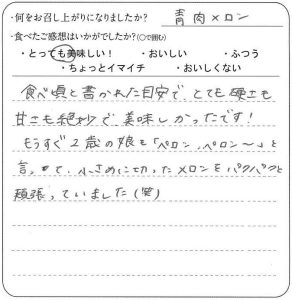 ・何をお召し上がりになりましたか? 青肉メロン
・食べたご感想はいかがでしたか?(○で囲む)
・とっても美味しい! ・おいしい ・ふつう
・ちょっとイマイチ ・おいしくない
食べ頃と書かれた目安で、とても硬さも
甘さも絶妙で、美味しかったです!
もうすぐ2歳の娘も「ペロン、ペロン〜」と
言って、小さめに切ったメロンをパクパクと
頬張っていました(笑)